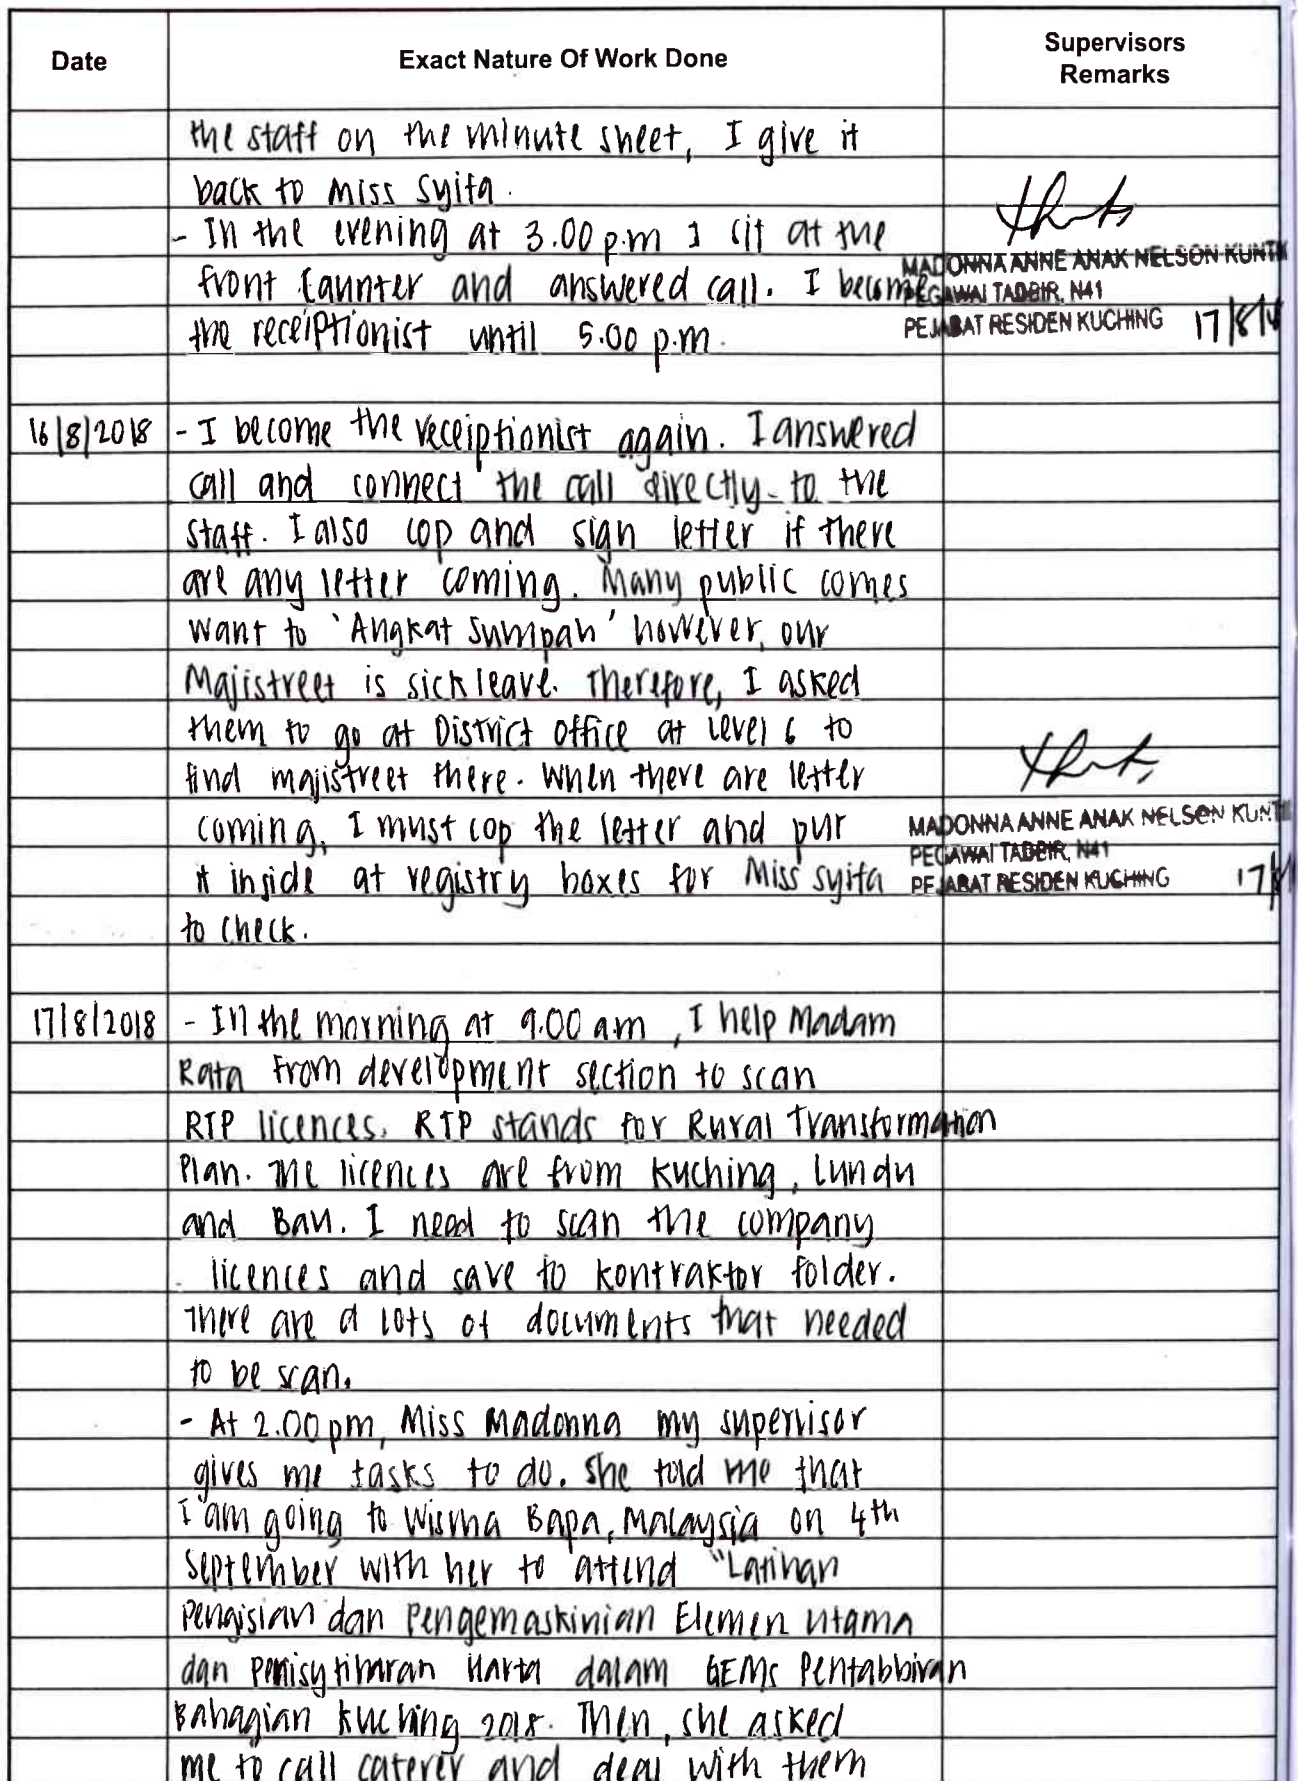 Date Exact Nature Of Work Done Supervisors Remarks
the staff on the minute sheet, I give it
back to Miss Syifa.
- In the evening at 3.00 p.m I sit at the
front Counter and answered call. I become
the receiptionist until 5.00 p.m.
MADONNA ANNE ANAK NELSON KUNTI
PEGAWAI TADBIR, N41
PEJABAT RESIDEN KUCHING 17/8/18
16/8/2018 - I become the receiptionist again. I answered
call and connect the call directly to the
staff. I also cop and sign letter if there
are any letter coming. Many public comes
want to 'Angkat Sumpah' however, our
Majistreet is sick leave. Therefore, I asked
them to go at District Office at Level 6 to
find majistreet there. When there are letter
coming, I must cop the letter and put
it inside at registry boxes for Miss Syifa
to check.
MADONNA ANNE ANAK NELSON KUNTI
PEGAWAI TADBIR, N41
PEJABAT RESIDEN KUCHING 17/
17/8/2018 - In the morning at 9.00 a.m, I help Madam
Rata from development section to scan
RTP licences. RTP stands for Rural Transformation
Plan. The licences are from Kuching, Lundu
and Bau. I need to scan the company
licences and save to kontraktor folder.
There are a lots of documents that needed
to be scan.
- At 2.00 pm, Miss Madonna my supervisor
gives me tasks to do. She told me that
I am going to Wisma Bapa, Malaysia on 4th
September with her to attend "Latihan
Pengisian dan Pengemaskinian Elemen Utama
dan Perisytiharan Harta dalam GEMs Pentabbiran
Bahagian Kuching 2018. Then, she asked
me to call caterer and deal with them